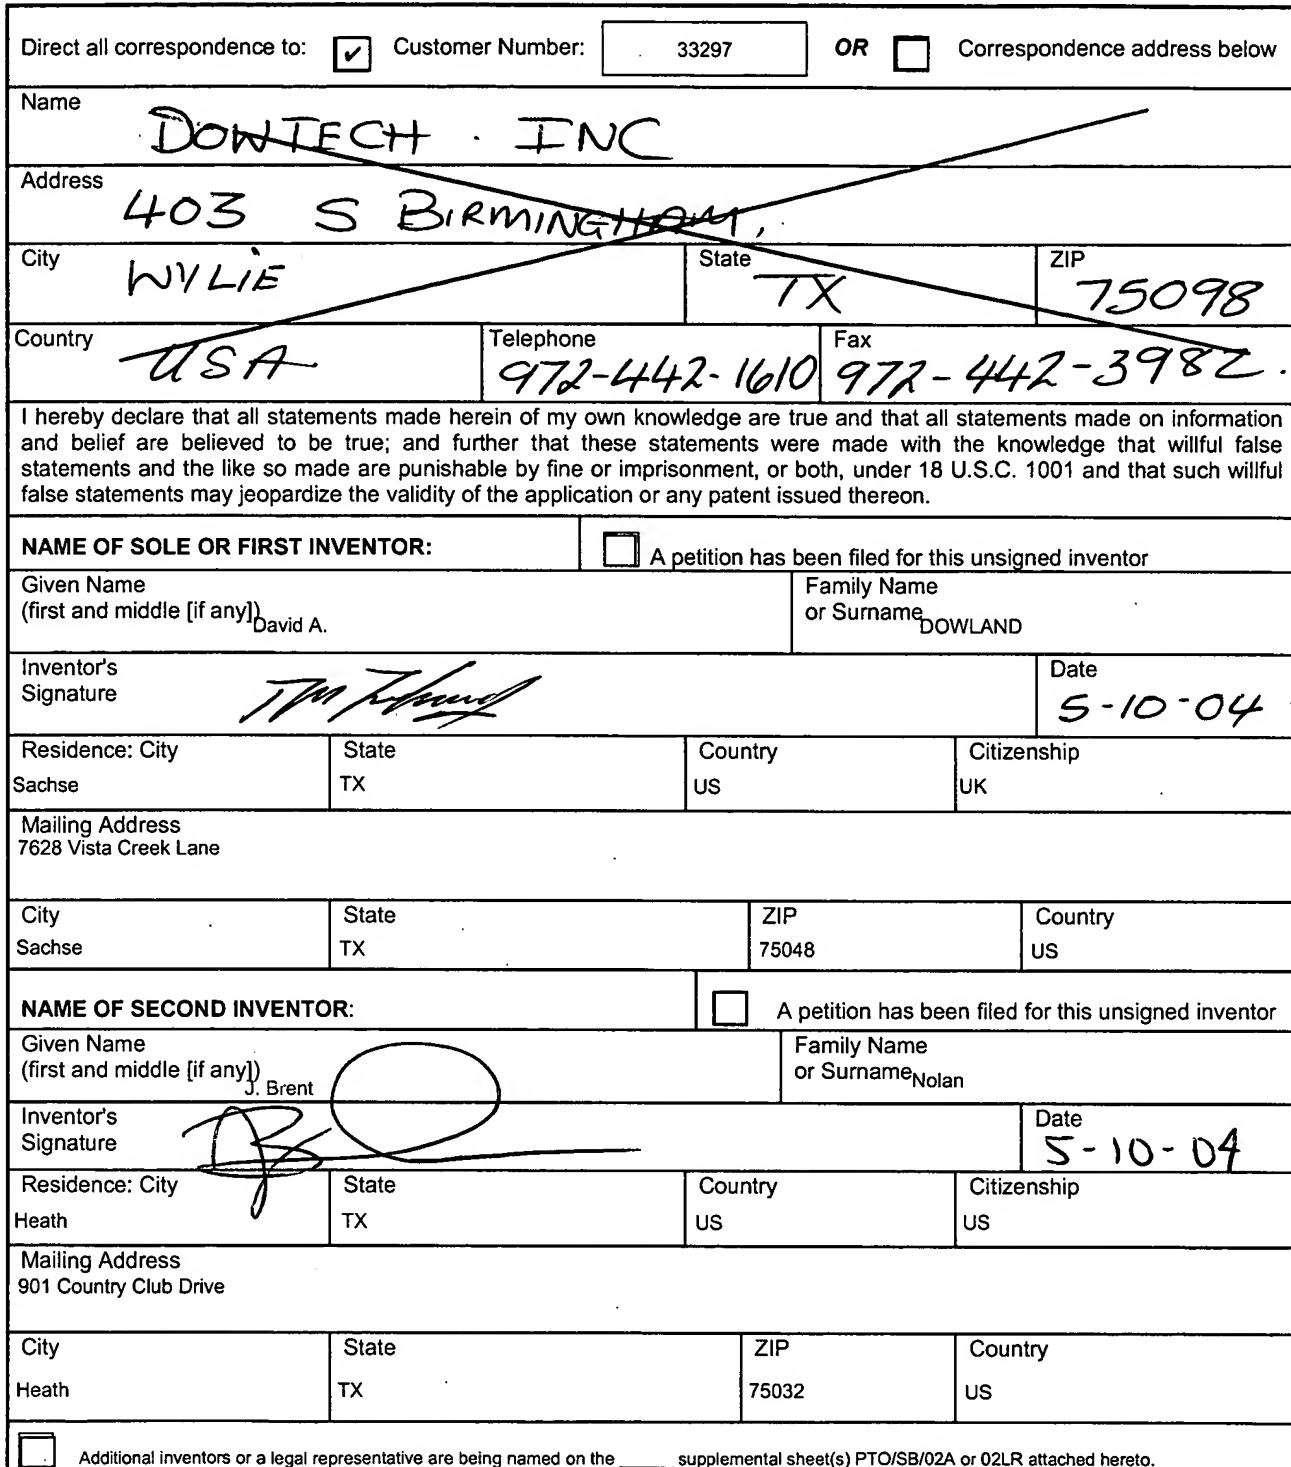 Direct all correspondence to: ✔ Customer Number: 33297 OR Correspondence address below
Name
DOWTECH . INC
Address
403 S BIRMINGHAM,
City WYLIE State TX ZIP 75098
Country USA Telephone 972-442-1610 Fax 972-442-3982.
I hereby declare that all statements made herein of my own knowledge are true and that all statements made on information
and belief are believed to be true; and further that these statements were made with the knowledge that willful false
statements and the like so made are punishable by fine or imprisonment, or both, under 18 U.S.C. 1001 and that such willful
false statements may jeopardize the validity of the application or any patent issued thereon.
NAME OF SOLE OR FIRST INVENTOR: A petition has been filed for this unsigned inventor
Given Name Family Name
(first and middle [if any]) David A. or Surname DOWLAND
Inventor's Date
Signature 5-10-04
Residence: City State Country Citizenship
Sachse TX US UK
Mailing Address
7628 Vista Creek Lane
City State ZIP Country
Sachse TX 75048 US
NAME OF SECOND INVENTOR: A petition has been filed for this unsigned inventor
Given Name Family Name
(first and middle [if any]) J. Brent or Surname Nolan
Inventor's Date
Signature 5-10-04
Residence: City State Country Citizenship
Heath TX US US
Mailing Address
901 Country Club Drive
City State ZIP Country
Heath TX 75032 US
Additional inventors or a legal representative are being named on the _____ supplemental sheet(s) PTO/SB/02A or 02LR attached hereto.